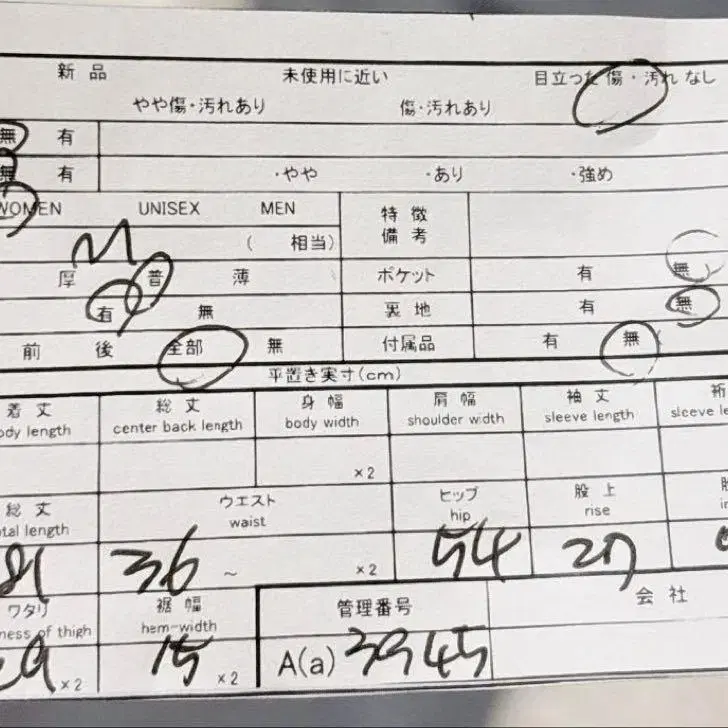 新品 未使用に近い 目立った傷・汚れなし
やや傷・汚れあり 傷・汚れあり
無 有
無 有 ・やや ・あり ・強め
WOMEN UNISEX MEN 特徴
備考
M ( 相当)
厚 普 薄 ポケット 有 無
有 無 裏地 有 無
前 後 全部 無 付属品 有 無
平置き実寸(cm)
着丈 総丈 身幅 肩幅 袖丈 裄
ody length center back length body width shoulder width sleeve length sleeve le
×2
総丈 ウエスト ヒップ 股上
tal length waist hip rise
36 ~ ×2 54 27
ワタリ 裾幅 管理番号 会社
ness of thigh hem-width
×2 15 ×2 A(a) 3945